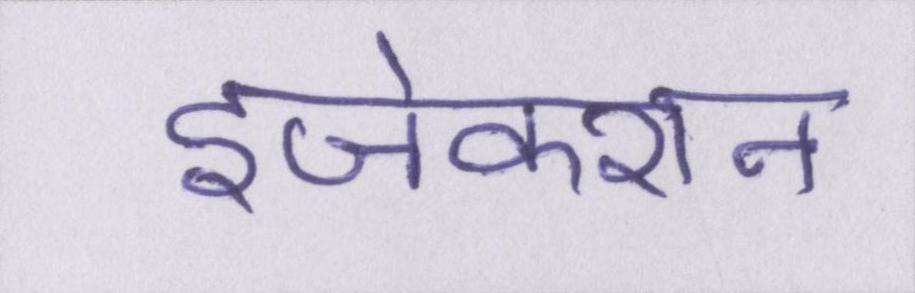 इजेकशन